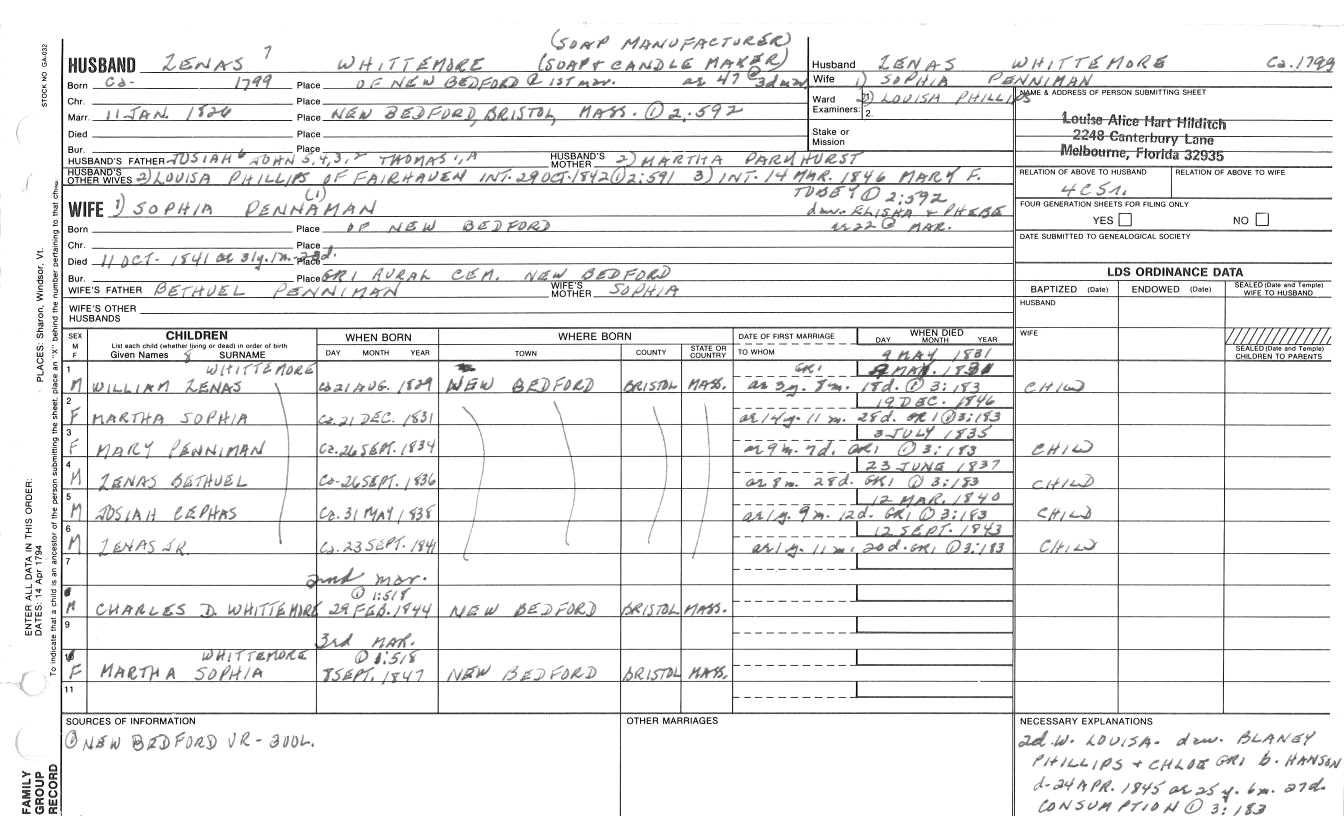 (SOAP MANUFACTURER)
HUSBAND ZENAS 7 WHITTEMORE (SOAP & CANDLE MAKER)
Husband ZENAS WHITTEMORE Ca. 1799
Born Ca- 1799 Place OF NEW BEDFORD @ 1ST mar. as 47 @ 3d mar
Wife 1) SOPHIA PENNIMAN
Chr. Place
Ward Examiners: 1. 2) LOUISA PHILLIPS
2.
NAME & ADDRESS OF PERSON SUBMITTING SHEET
Louise Alice Hart Hilditch
2248 Canterbury Lane
Melbourne, Florida 32935
Marr. 11 JAN. 1826 Place NEW BEDFORD, BRISTOL, MASS. ① 2:592
Died Place
Stake or Mission
Bur. Place
HUSBAND'S FATHER JOSIAH 6 JOHN 5,4,3,2 THOMAS 1,A HUSBAND'S MOTHER 2) MARTHA PARKHURST
HUSBAND'S OTHER WIVES 2) LOUISA PHILLIPS OF FAIRHAVEN INT. 29 OCT. 1842 ① 2:591 3) INT. 14 MAR. 1846 MARY F.
TOBEY ① 2:592
daw. ELISHA & PHEBE
as 22 @ MAR.
RELATION OF ABOVE TO HUSBAND RELATION OF ABOVE TO WIFE
4C5r.
FOUR GENERATION SHEETS FOR FILING ONLY
YES NO
DATE SUBMITTED TO GENEALOGICAL SOCIETY
(1)
WIFE 1) SOPHIA PENNAMAN
Born Place OF NEW BEDFORD
Chr. Place
Died 11 OCT- 1841 as 31y. 1m. 23d. Place
Bur. Place GR1 RURAL CEM. NEW BEDFORD
WIFE'S FATHER BETHUEL PENNIMAN WIFE'S MOTHER SOPHIA
WIFE'S OTHER HUSBANDS
LDS ORDINANCE DATA
BAPTIZED (Date) ENDOWED (Date) SEALED (Date and Temple) WIFE TO HUSBAND
HUSBAND
WIFE
SEALED (Date and Temple) CHILDREN TO PARENTS
SEX M F CHILDREN WHEN BORN WHERE BORN DATE OF FIRST MARRIAGE WHEN DIED
List each child (whether living or dead) in order of birth
Given Names 8 SURNAME DAY MONTH YEAR TOWN COUNTY STATE OR COUNTRY TO WHOM DAY MONTH YEAR
9 MAY 1831
1 WHITTEMORE GR1 9 MAY. 1831
M WILLIAM ZENAS Ca 21 AUG. 1829 NEW BEDFORD BRISTOL MASS. as 3y. 8m. 18d. ① 3:183 CHILD
2 19 DEC. 1846
F MARTHA SOPHIA Ca. 21 DEC. 1831 as 14y. 11 m. 28d. GR1 ① 3:183
3 3 JULY 1835
F MARY PENNIMAN Ca. 26 SEPT. 1834 as 9m. 7d. GR1 ① 3:183 CHILD
4 23 JUNE 1837
M ZENAS BETHUEL Ca- 26 SEPT. 1836 as 8m. 28d. GR1 ① 3:183 CHILD
5 12 MAR. 1840
M JOSIAH CEPHAS Ca. 31 MAY 1838 as 1y. 9m. 12d. GR1 ① 3:183 CHILD
6 12 SEPT. 1843
M ZENAS JR. Ca. 23 SEPT. 1841 as 1y. 11m. 20d. GR1 ① 3:183 CHILD
7
2nd mar.
① 1:518
M CHARLES D. WHITTEMORE 29 FEB. 1844 NEW BEDFORD BRISTOL MASS.
9
3rd MAR.
WHITTEMORE ① 1:518
F MARTHA SOPHIA 8 SEPT. 1847 NEW BEDFORD BRISTOL MASS.
11
SOURCES OF INFORMATION OTHER MARRIAGES NECESSARY EXPLANATIONS
① NEW BEDFORD VR - 300L.
2d. W. LOUISA- daw. BLANEY
PHILLIPS & CHLOE GR1 b. HANSON
d- 24 APR. 1845 as 25 y. 6m. 27d.
CONSUMPTION ① 3:183
STOCK NO. GA-032
PLACES: Sharon, Windsor, Vt.
ENTER ALL DATA IN THIS ORDER:
DATES: 14 Apr 1794
To indicate that a child is an ancestor of the person submitting the sheet, place an "X" behind the number pertaining to that
FAMILY
GROUP
RECORD